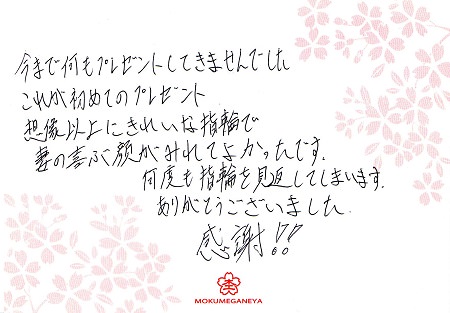 今まで何もプレゼントしてきませんでした
これが初めてのプレゼント
想像以上にきれいな指輪で
妻の喜ぶ顔がみれてよかったです.
何度も指輪を見返してしまいます.
ありがとうございました.
感謝!!
MOKUMEGANEYA